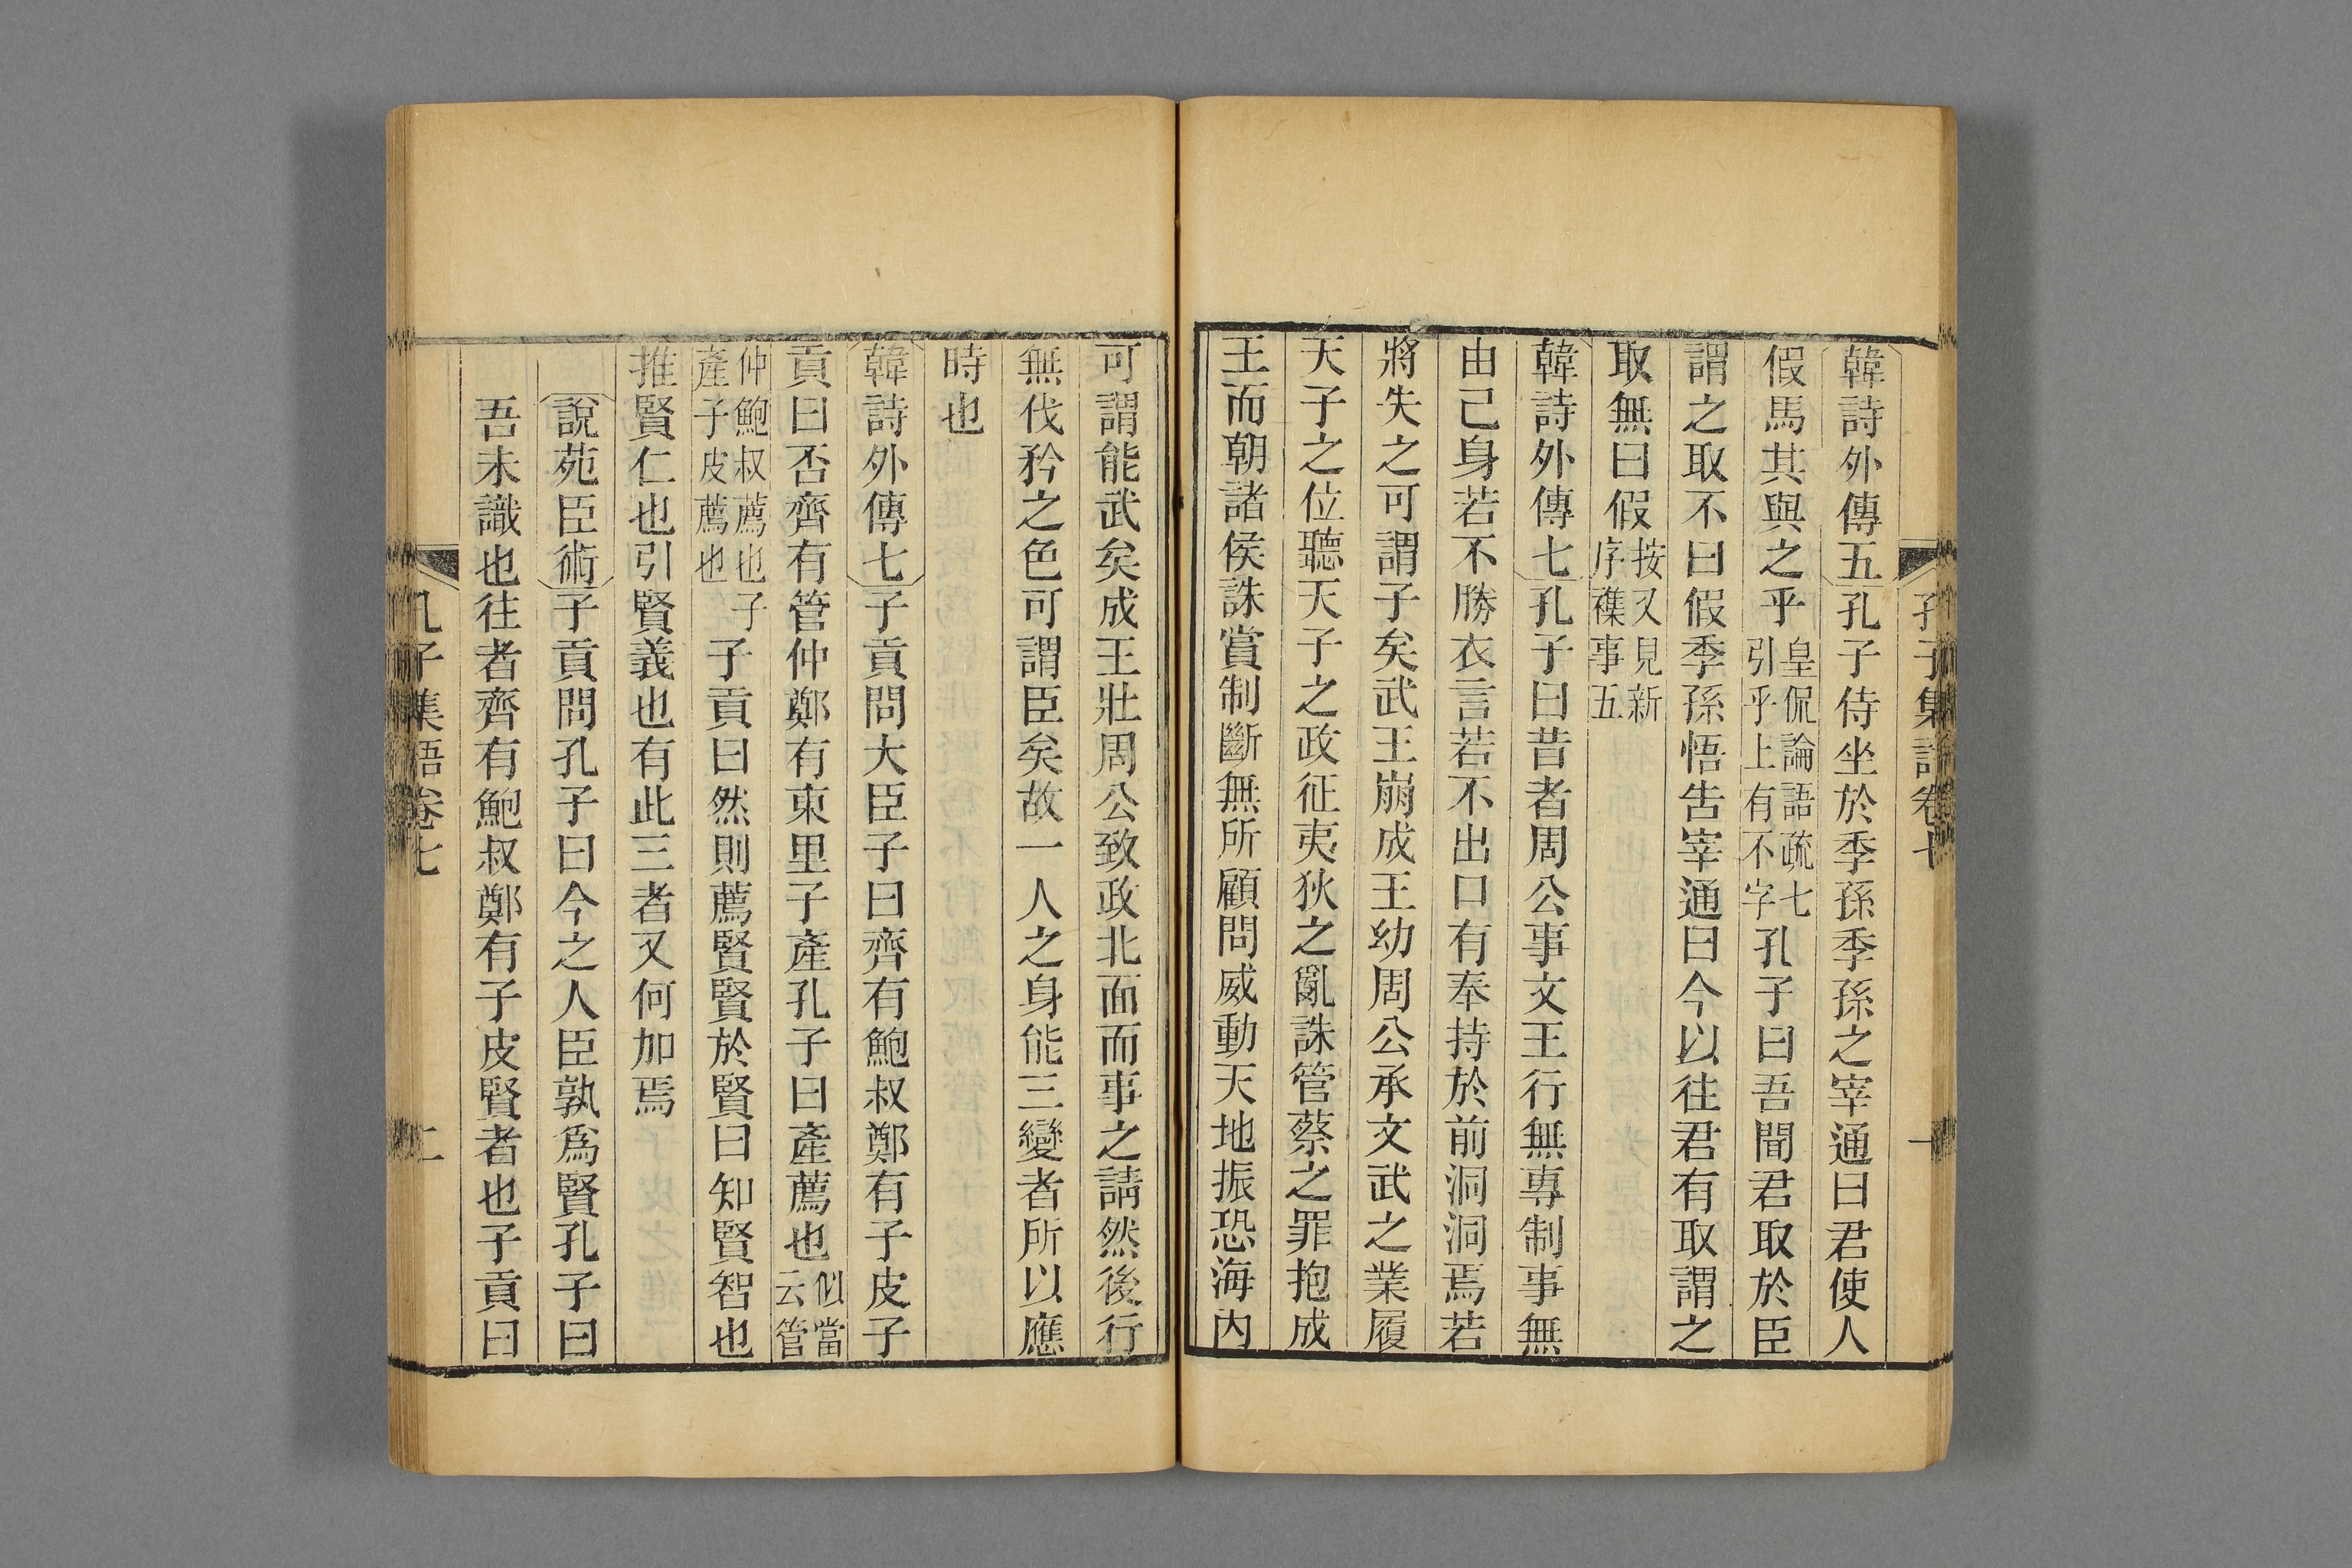 孔子集語卷七
一
韓詩外傳五孔子侍坐於季孫季孫之宰通曰君使人
假馬其與之乎皇侃論語疏七引乎上有不字孔子曰吾聞君取於臣
謂之取不曰假季孫悟告宰通曰今以往君有取謂之
取無曰假按又見新序襍事五
韓詩外傳七孔子曰昔者周公事文王行無專制事無
由己身若不勝衣言若不出口有奉持於前洞洞焉若
將失之可謂子矣武王崩成王幼周公承文武之業履
天子之位聽天子之政征夷狄之亂誅管蔡之罪抱成
王而朝諸侯誅賞制斷無所顧問威動天地振恐海內
可謂能武矣成王壯周公致政北面而事之請然後行
無伐矜之色可謂臣矣故一人之身能三變者所以應
時也
韓詩外傳七子貢問大臣子曰齊有鮑叔鄭有子皮子
貢曰否齊有管仲鄭有東里子產孔子曰產薦也似當云管
仲鮑叔薦也子產子皮薦也子貢曰然則薦賢賢於賢曰知賢智也
推賢仁也引賢義也有此三者又何加焉
說苑臣術子貢問孔子曰今之人臣孰為賢孔子曰
吾未識也往者齊有鮑叔鄭有子皮賢者也子貢曰
孔子集語卷七
二